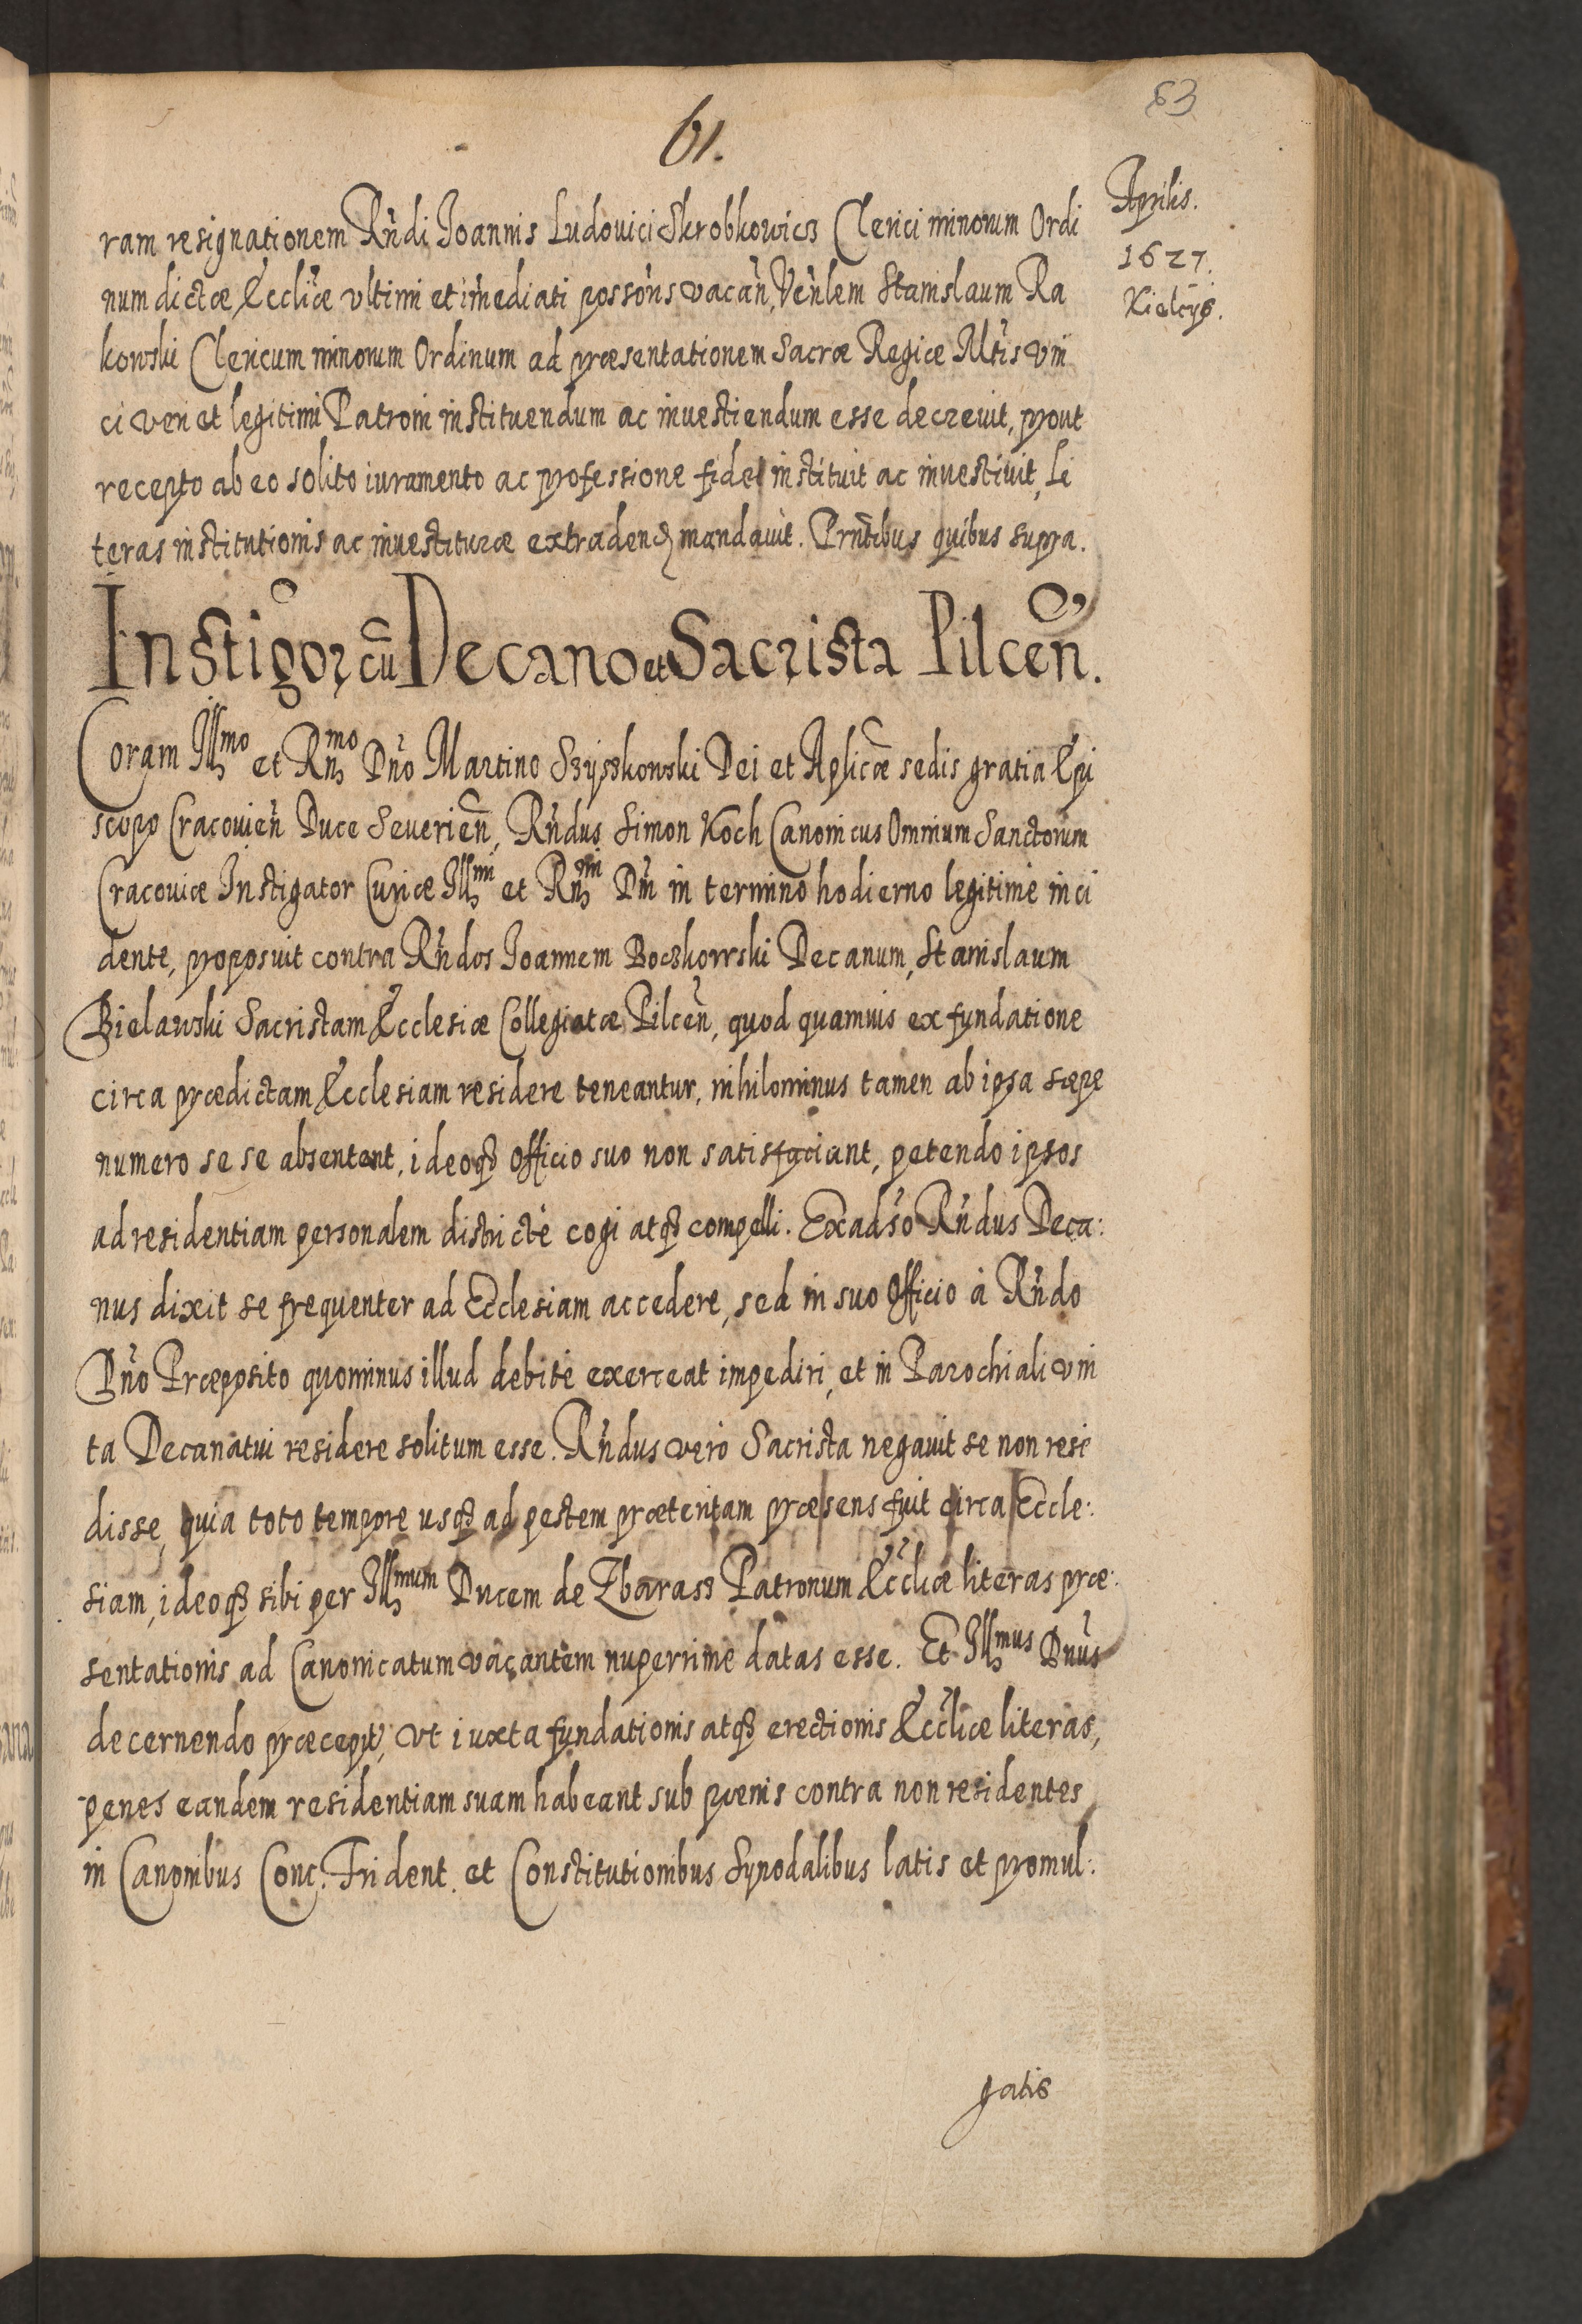 63
61.
Aprilis.
1627.
Kielcys.
ram resignationem Rńdi Joannis Ludovici Skrobkowicz Clerici minorum Ordi
num dictæ Eccliæ vltimi et im̃ediati possõris vacañ, Veñlem Stanislaum Ra
kowski Clericum minorum Ordinum ad præsentationem Sacræ Regiæ Mtis vni
ci veri et legitimi Patroni instituendum ac inuestiendum esse decreuit, prout
recepto ab eo solito iuramento ac professione fidei instituit ac inuestiuit, Li
teras institutionis ac inuestituræ extradendas mandauit. Prñtibus quibus supra.
Instigor cũ Decano et Sacrista Pilceñ.
Coram Illmo et Rnmo Dño Martino Szyszkowski Dei et Aplicæ sedis gratia Epi
scopo Cracouieñ Duce Seuerieñ, Rñdus Simon Koch Canonicus Omnium Sanctorum
Cracouiæ Instigator Curiæ Illmi et Rnmi Dñi in termino hodierno legitime inci
dente, proposuit contra Rñdos Joannem Boczkowski Decanum, Stanislaum
Bielawski Sacristam Ecclesiæ Collegiatæ Pilceñ, quod quamuis ex fundatione
circa prædictam Ecclesiam residere teneantur, nihilominus tamen ab ipsa sæpe
numero se se absentent, ideoq₃ officio suo non satisfaciant, petendo ipsos
ad residentiam personalem districtè cogi atq₃ compelli. Exadṡo Rñdus Deca:
nus dixit se frequenter ad Ecclesiam accedere, sed in suo Officio à Rñdo
Dño Præposito quominus illud debitè exerceat impediri, et in Parochiali vni
ta Decanatui residere solitum esse. Rñdus verò Sacrista negauit se non resi
disse, quia toto tempore usq₃ ad pestem præteritam præsens fuit circa Eccle:
siam, ideoq₃ sibi per Illmum Ducem de Zbarasz Patronum Eccliæ literas præ:
sentationis ad Canonicatum vacantem nuperrime datas esse. Et Illmus Dñus
decernendo præcepit, vt iuxta fundationis atq₃ erectionis Eccliæ literas,
penes eandem residentiam suam habeant sub pœnis contra non residentes
in Canonibus Conc. Trident. et Constitutionibus Synodalibus latis et promul:
gatis